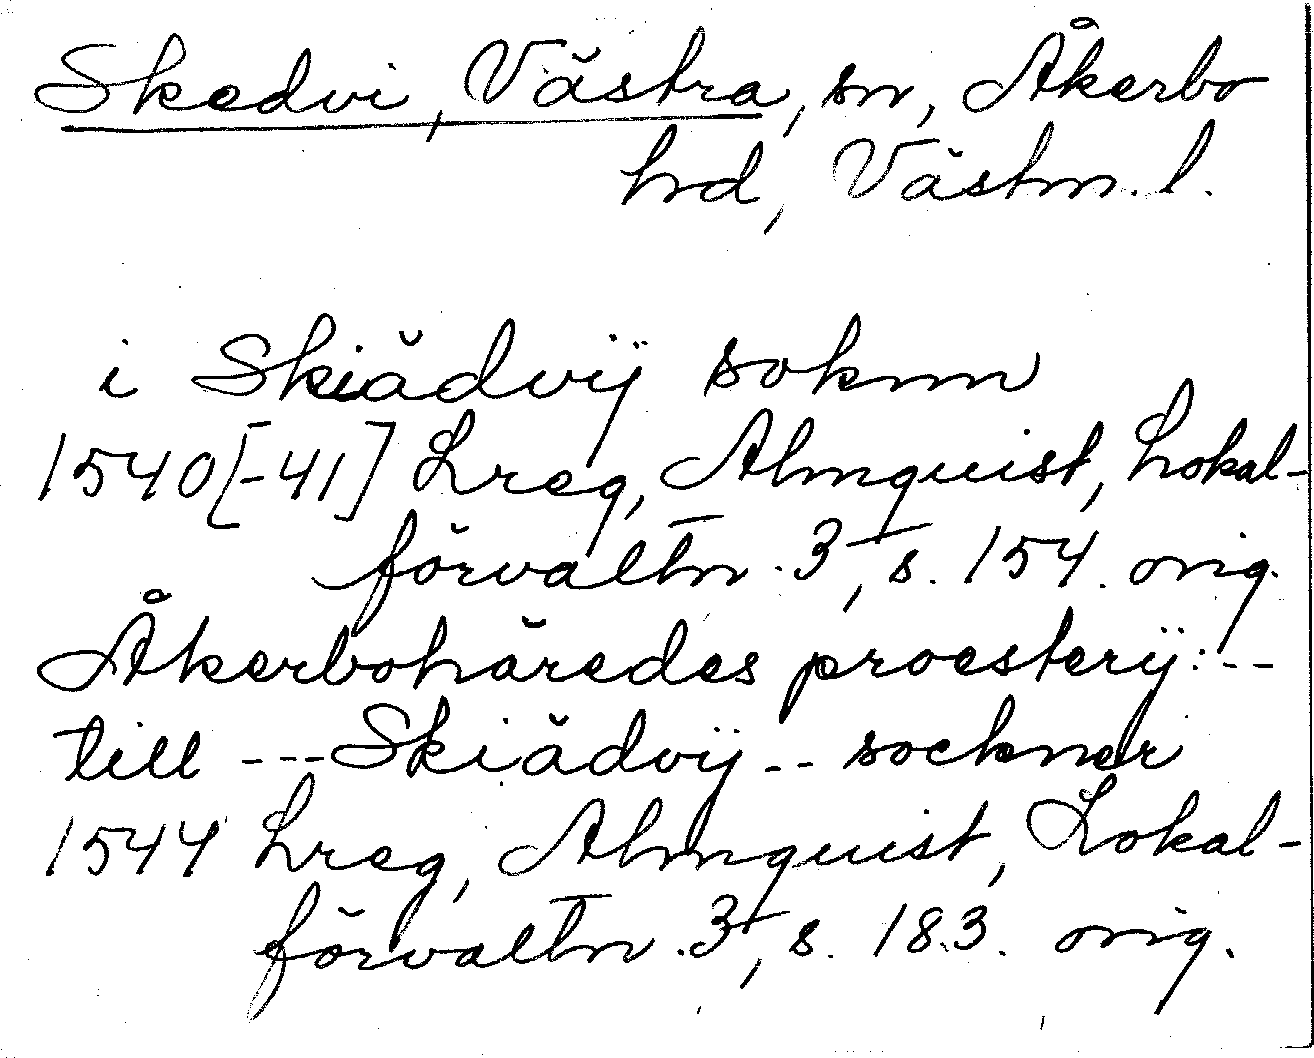 Skedvi, Västra, sn, Åkerbo
hd, Västm. l.
i Skiädvÿ soknn
1540[-41] Lreg, Almquist, Lokal-
förvaltn. 3, s. 154. orig.
Åkerbohäredes proesterÿ: --
till --- Skiädvÿ -- socknar
1544 Lreg, Almquist, Lokal-
förvaltn. 3, s. 183. orig.